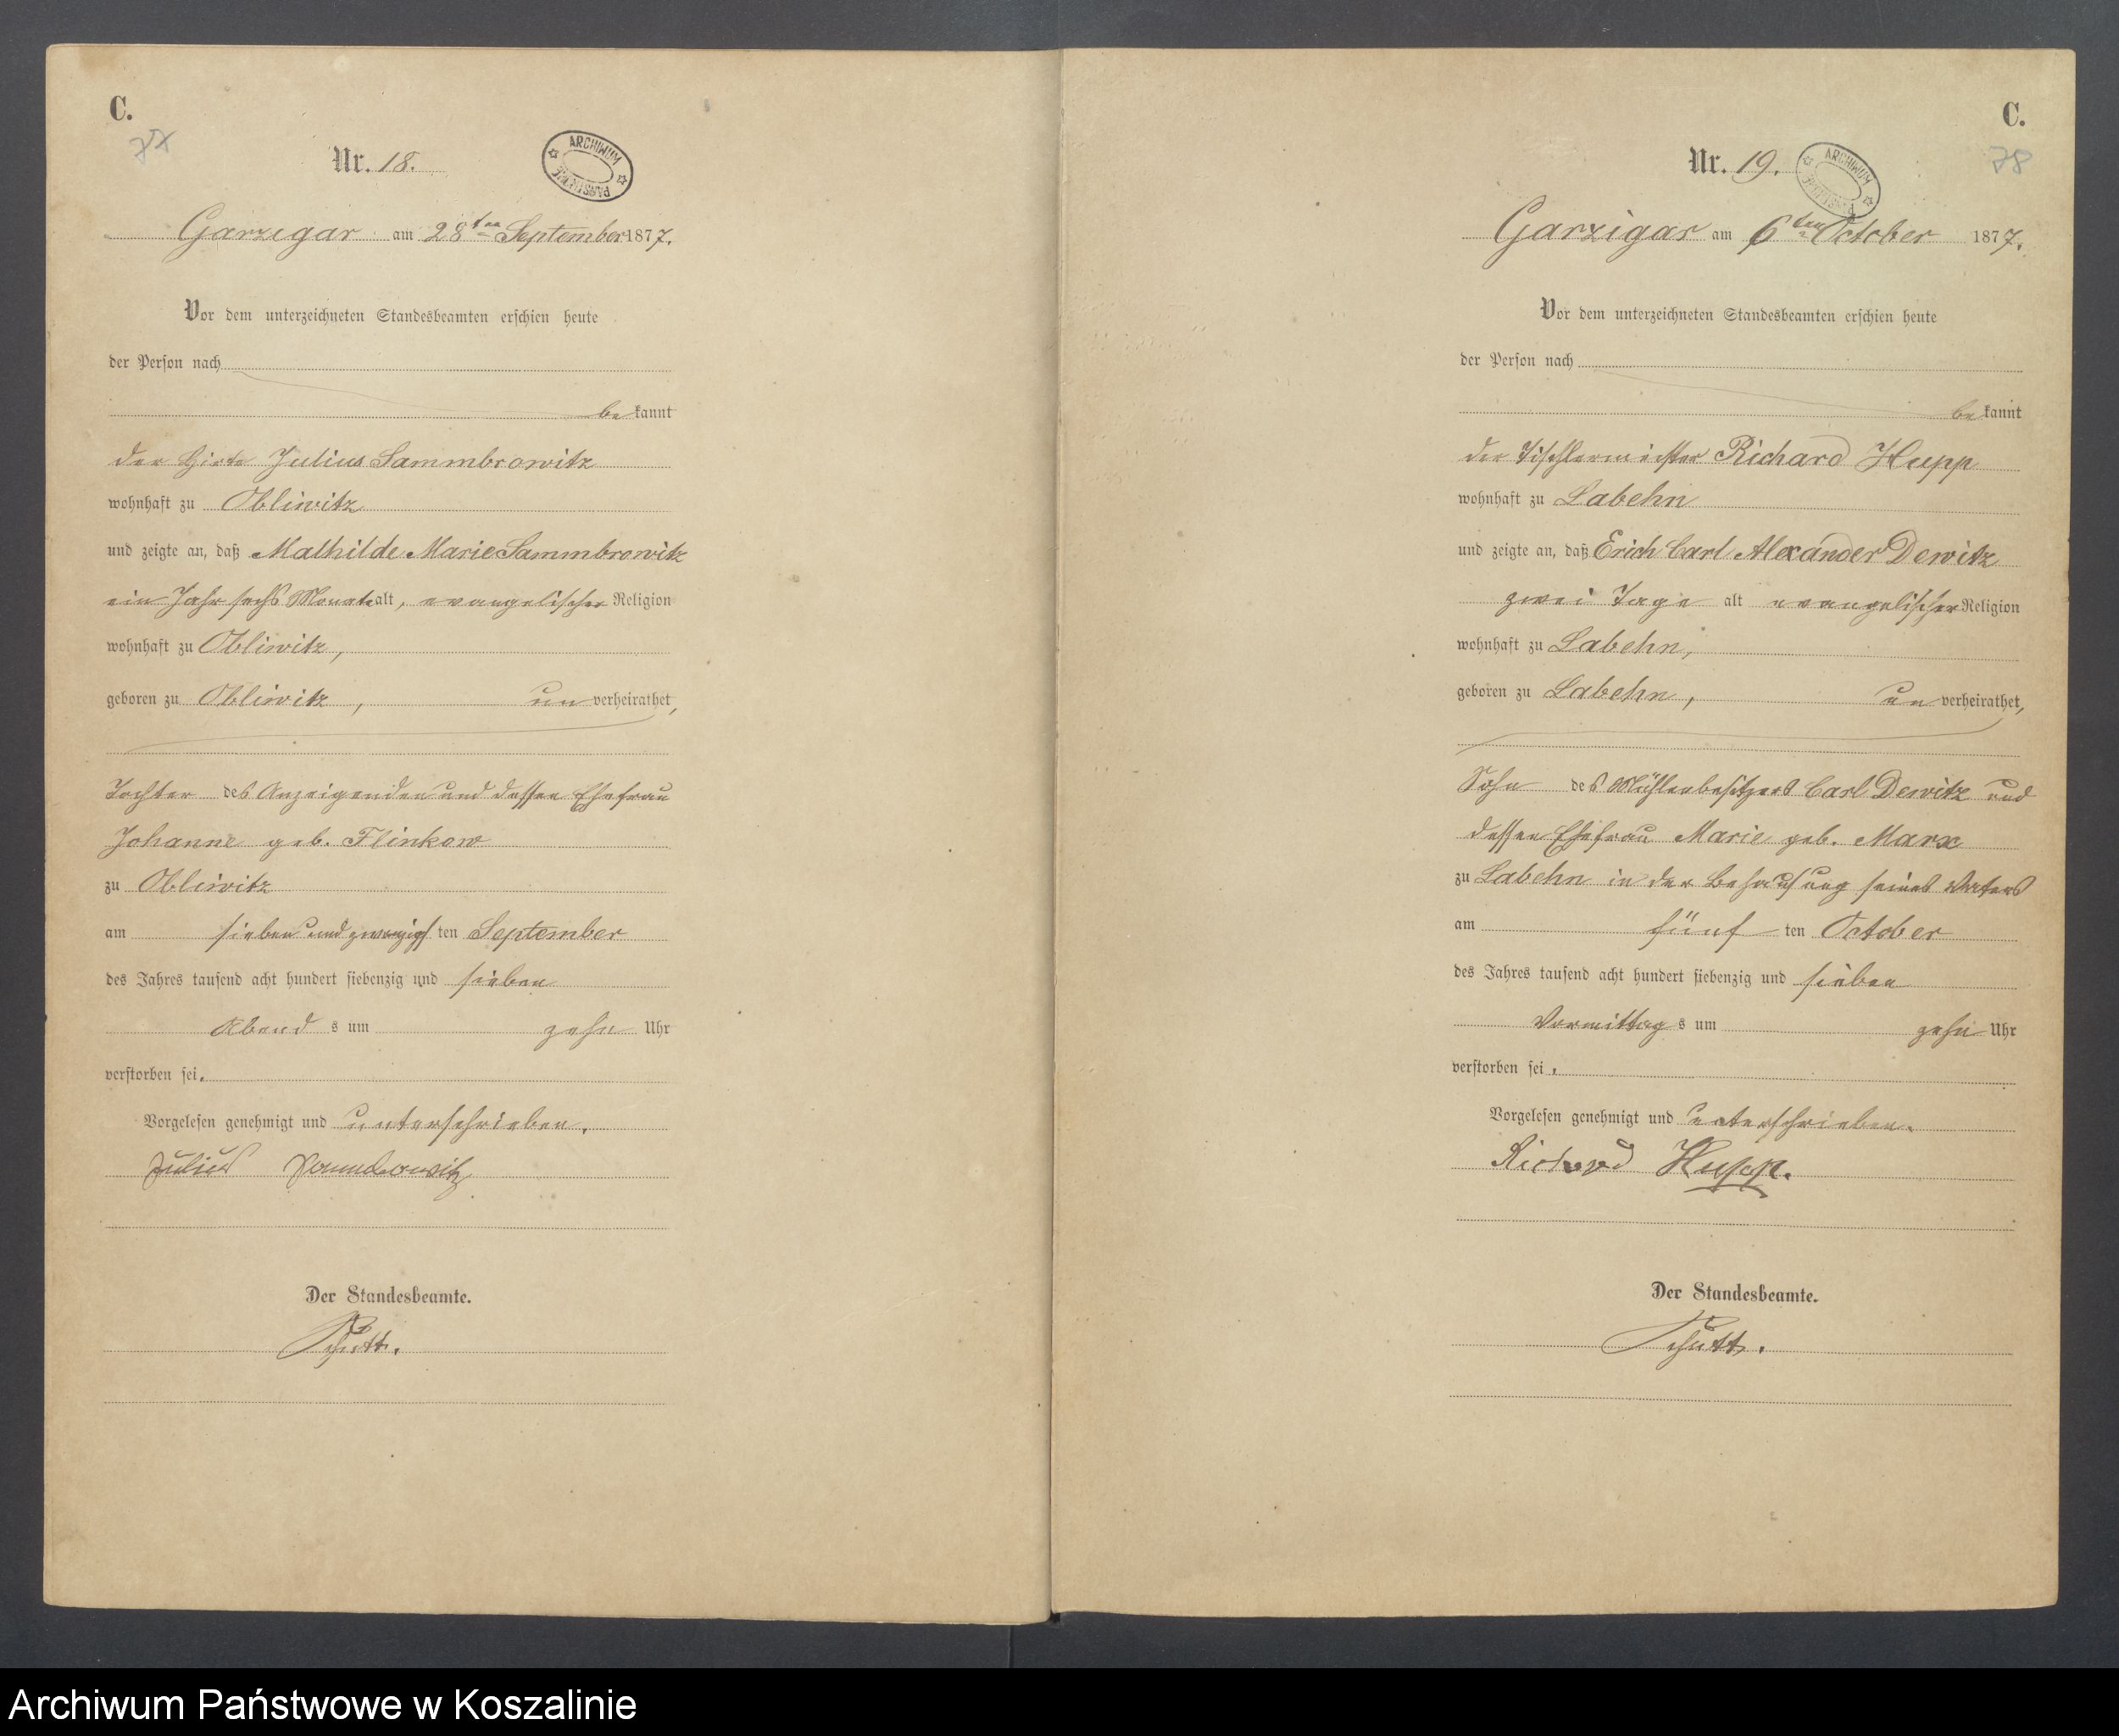 C.
77
Nr. 18.
ARCHIWUM PAŃSTWOWE
Garzigar am 28ten September 1877.
Vor dem unterzeichneten Standesbeamten erschien heute
der Person nach
bekannt
der Hirte Julius Sammbrowitz
wohnhaft zu Obliwitz
und zeigte an, daß Mathilde Marie Sammbrowitz
ein Jahr sechs Monate alt, evangelischer Religion
wohnhaft zu Obliwitz,
geboren zu Obliwitz, unverheirathet,
Tochter des Anzeigenden und dessen Ehefrau
Johanne geb. Flinkow
zu Obliwitz
am sieben und zwanzigsten September
des Jahres tausend acht hundert siebenzig und sieben
Abends um zehn Uhr
verstorben sei.
Vorgelesen genehmigt und unterschrieben.
Julius
Der Standesbeamte.
Schütt.
C.
78
Nr. 19.
ARCHIWUM PAŃSTWOWE
Garzigar am 6ten October 1877.
Vor dem unterzeichneten Standesbeamten erschien heute
der Person nach
bekannt
der Tischlermeister Richard Hupp
wohnhaft zu Labehn
und zeigte an, daß Erich Carl Alexander Dewitz
zwei Tage alt evangelischer Religion
wohnhaft zu Labehn,
geboren zu Labehn, unverheirathet,
Sohn des Mühlenbesitzers Carl Dewitz und
dessen Ehefrau Marie geb. Marx
zu Labehn in der Behausung seines Vaters
am fünften October
des Jahres tausend acht hundert siebenzig und sieben
Vormittags um zehn Uhr
verstorben sei.
Vorgelesen genehmigt und unterschrieben.
Richard Hupp.
Der Standesbeamte.
Schütt.
Archiwum Państwowe w Koszalinie